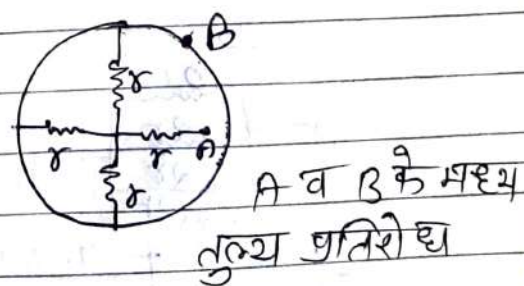 B
r
r r A
r
A व B के मध्य
तुल्य प्रतिरोध